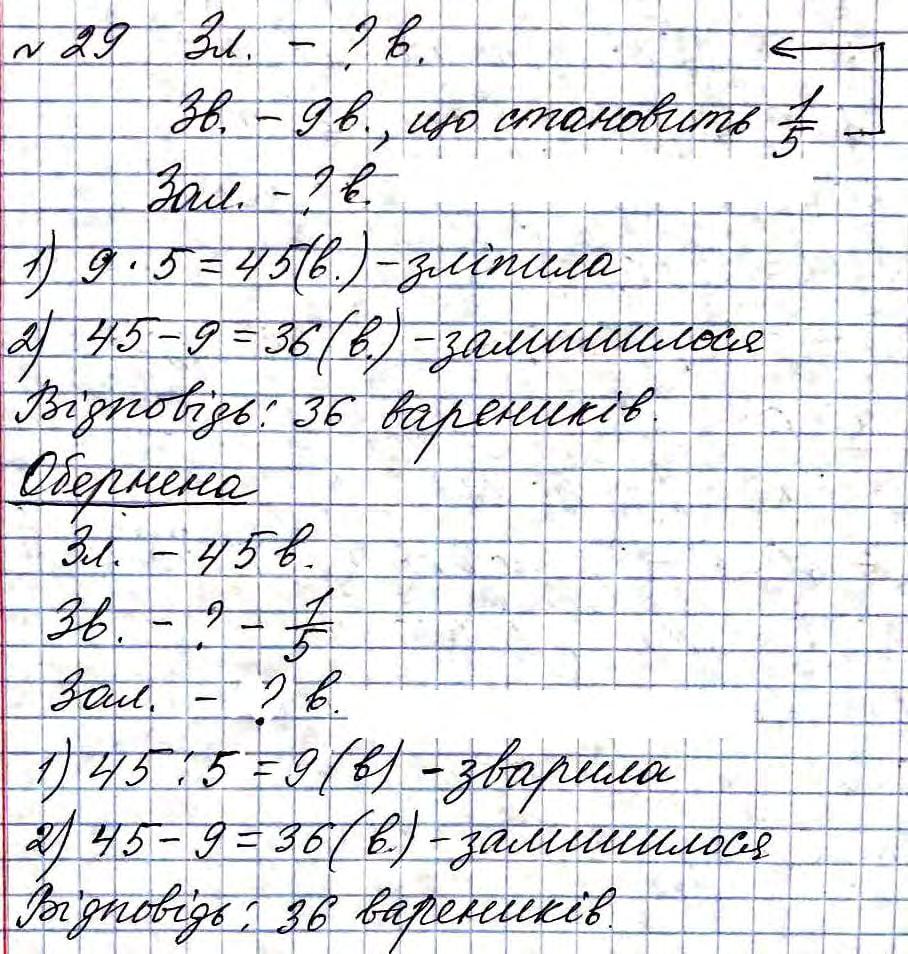 № 29 Зл. – ? в.
Зв. – 9 в., що становить 1/5
Зал. – ? в.
1) 9 · 5 = 45 (в.) – зліпила
2) 45 – 9 = 36 (в.) – залишилося
Відповідь: 36 вареників.
Обернена
Зл. – 45 в.
Зв. – ? – 1/5
Зал. – ? в.
1) 45 : 5 = 9 (в) – зварила
2) 45 – 9 = 36 (в.) – залишилося
Відповідь: 36 вареників.